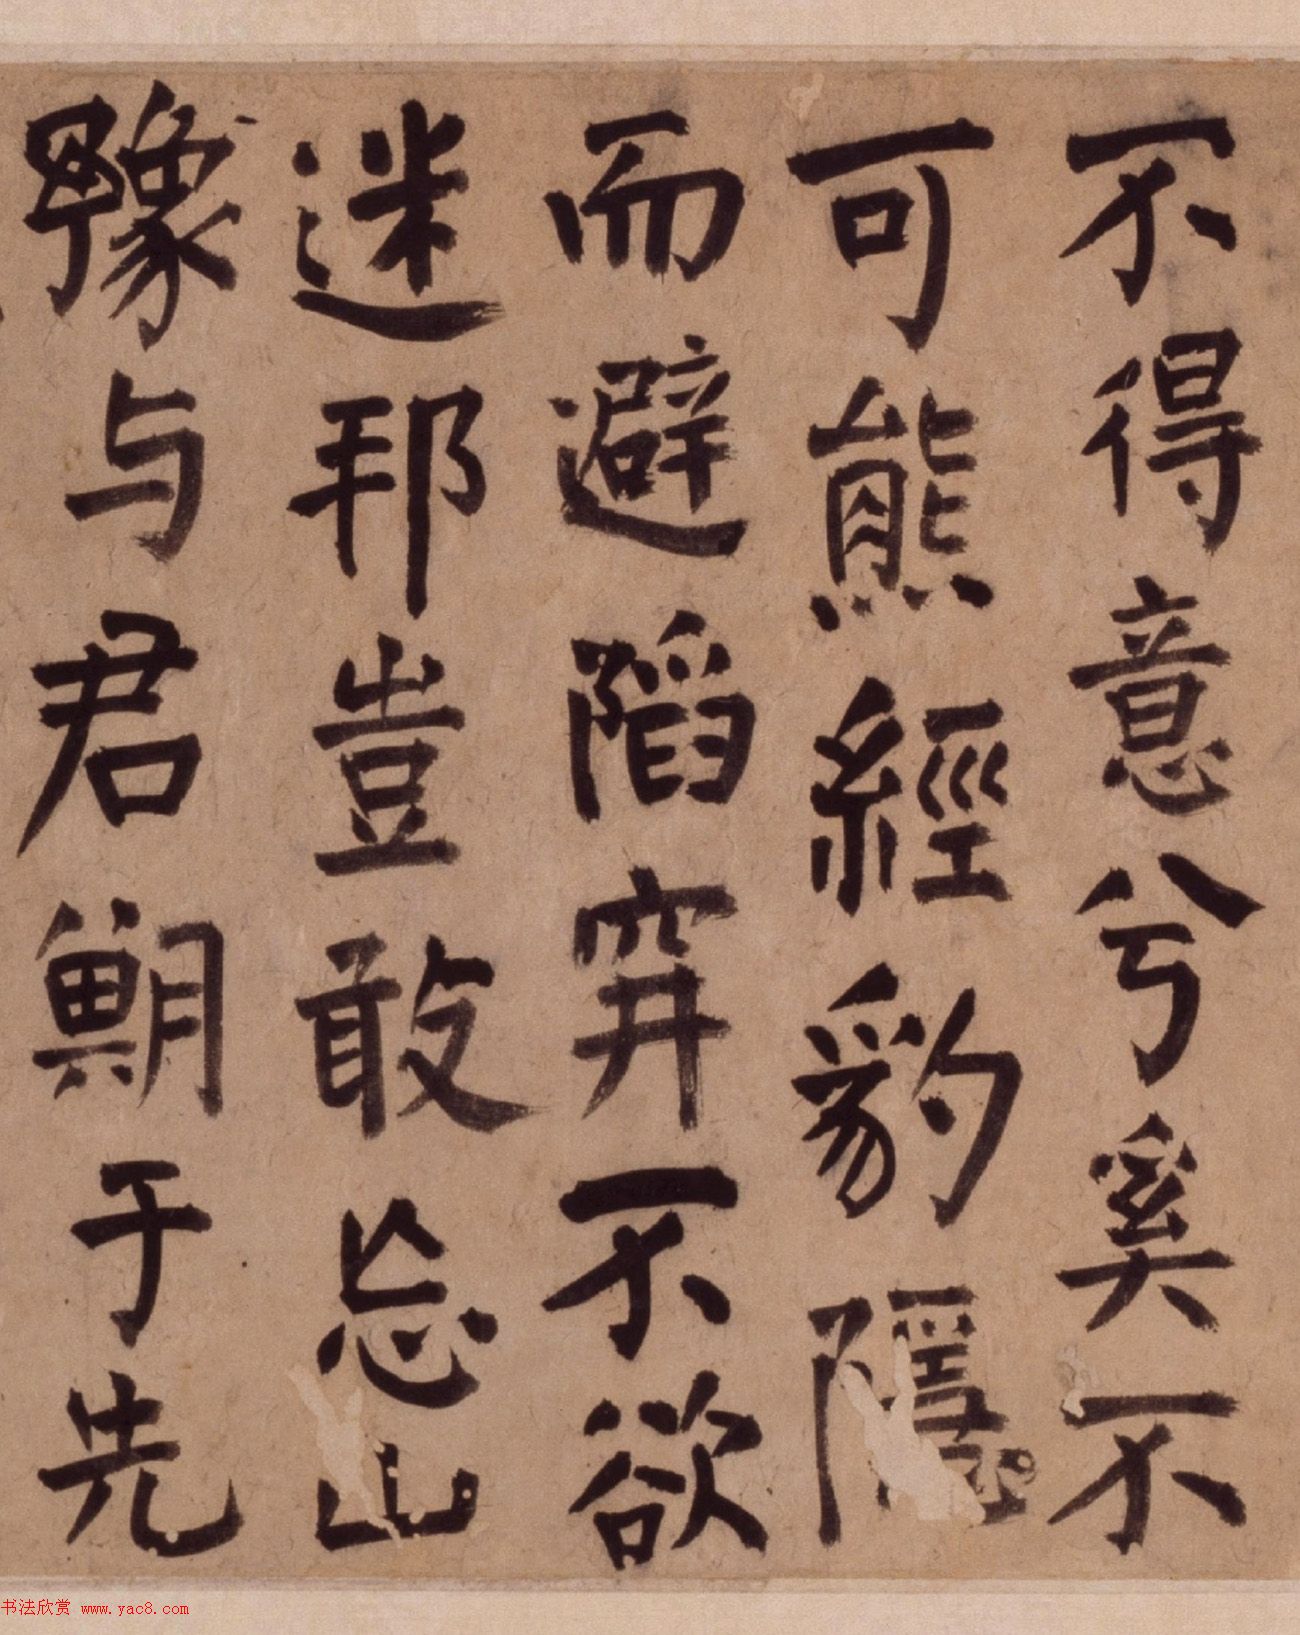 不得意兮奚不
可熊經豹隱
而避陷穽不欲
迷邦豈敢忘山
豫与君鄭于先
书法欣赏 www.yac8.com